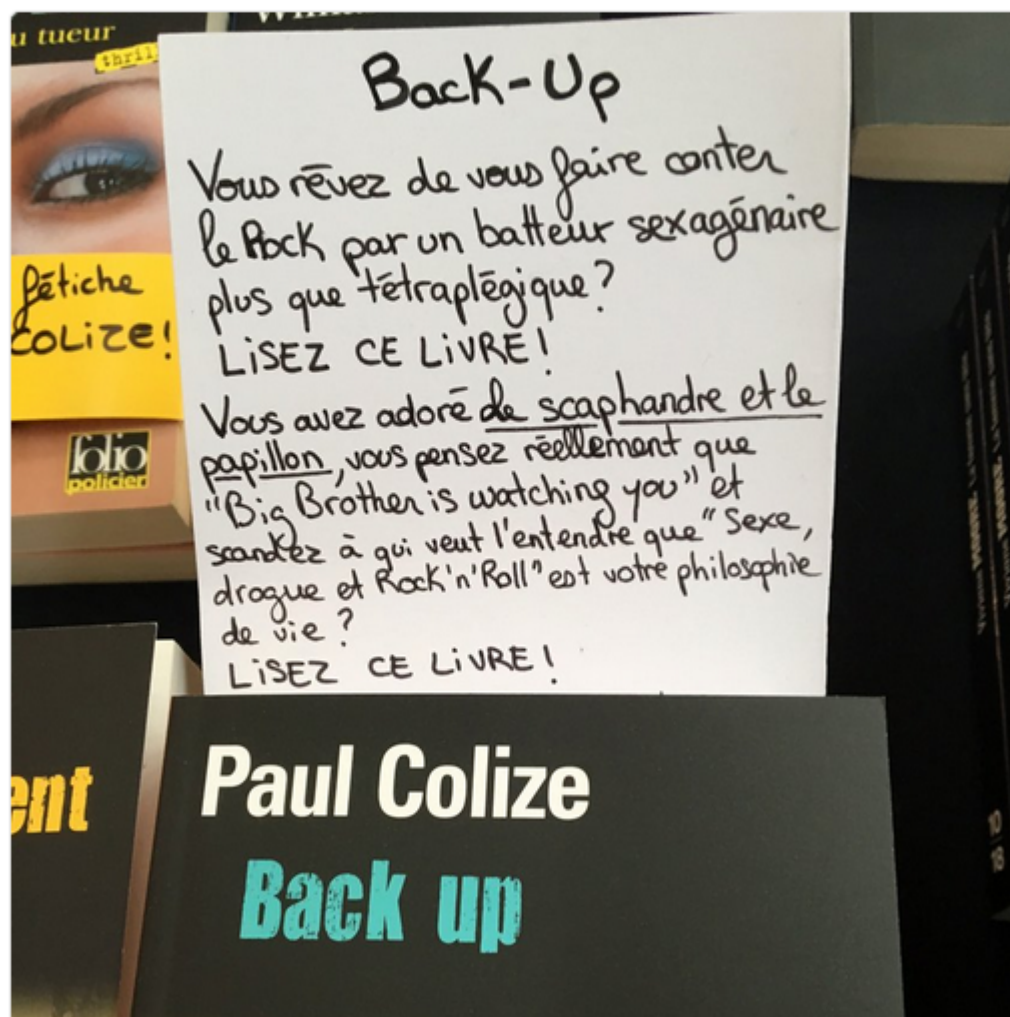 u tueur
thril
Back-Up
Vous rêvez de vous faire conter
le Rock par un batteur sexagénaire
plus que tétraplégique?
LISEZ CE LIVRE!
Vous avez adoré de scaphandre et le
papillon, vous pensez réellement que
"Big Brother is watching you" et
scandez à qui veut l'entendre que "Sexe,
drogue et Rock'n'Roll" est votre philosophie
de vie?
LISEZ CE LIVRE!
fétiche
COLIZE!
folio
policier
ent
Paul Colize
Back up
10
18